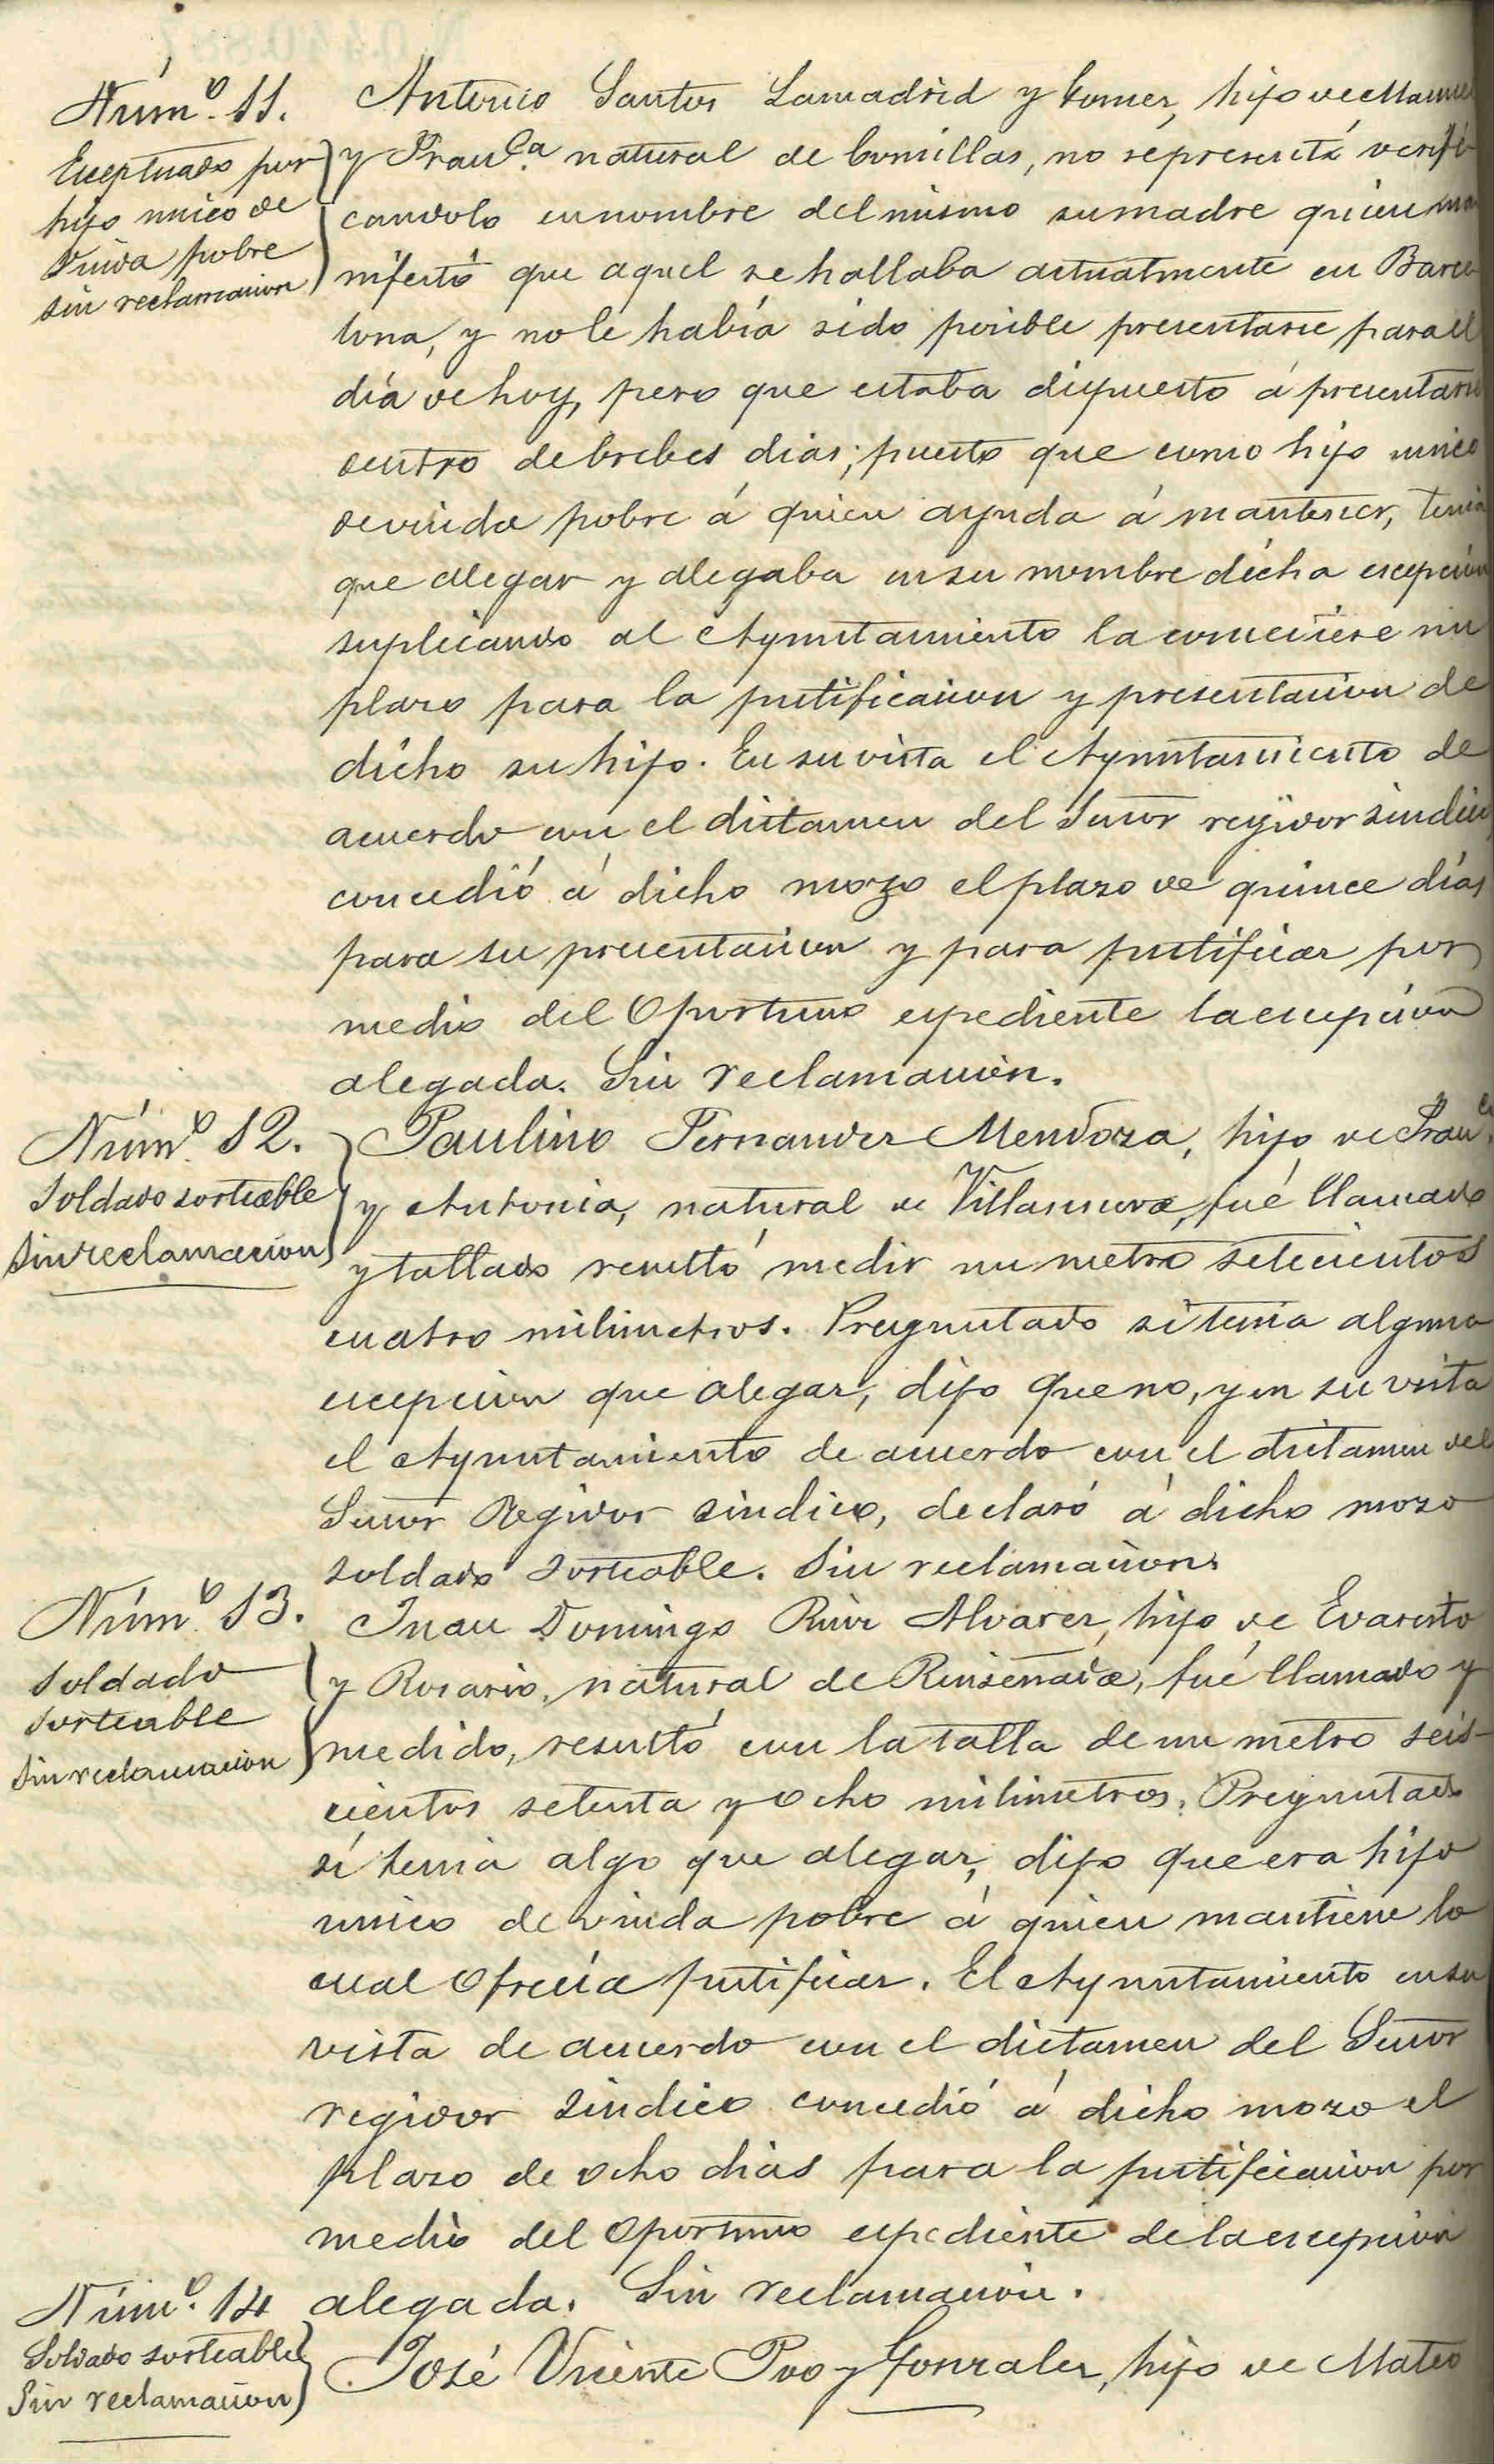 Núm.º 11.
Exceptuado por
hijo unico de
viuda pobre
sin reclamacion
Antonio Santos Lamadrid y Gomez, hijo de Manuel
y Fran.ca natural de Comillas, no se presentó verifi
candolo en nombre del mismo su madre quien ma
nifestó que aquel se hallaba actualmente en Barce
lona, y no le había sido posible presentarse para el
día de hoy, pero que estaba dispuesto á presentarse
dentro de brebes dias; puesto que como hijo unico
de viuda pobre á quien ayuda á mantener, tenia
que alegar y alegaba en su nombre dicha escepción
suplicando al Ayuntamiento la concediese un
plazo para la justificacion y presentacion de
dicho su hijo. En su vista el Ayuntamiento de
acuerdo con el dictamen del Señor regidor sindico,
concedió á dicho mozo el plazo de quince días
para su presentacion y para justificar por
medio del Oportuno espediente la escepcion
alegada. Sin reclamación.
Núm.º 12.
Soldado sorteable
Sin reclamacion
Paulino Fernandez Mendoza, hijo de Fran.co
y Antonia, natural de Villanueva, fué llamado
y tallado resultó medir un metro setecientos
cuatro milimetros. Preguntado si tenia alguna
escepcion que alegar, dijo que no, y en su vista
el Ayuntamiento de acuerdo con el dictamen del
Señor Regidor sindico, declaró á dicho mozo
soldado sorteable. Sin reclamacion.
Núm.º 13.
Soldado
sorteable
Sin reclamacion
Juan Domingo Ruiz Alvarez, hijo de Evaristo
y Rosario, natural de Ruiseñada, fué llamado y
medido, resultó con la talla de un metro seis-
cientos setenta y ocho milimetros. Preguntado
si tenia algo que alegar, dijo que era hijo
unico de viuda pobre á quien mantiene lo
cual Ofrecía justificar. El Ayuntamiento en su
vista de acuerdo con el dictamen del Señor
regidor sindico concedió á dicho mozo el
plazo de ocho dias para la justificacion por
medio del Oportuno espediente de la escepcion
alegada. Sin reclamacion.
Núm.º 14
Soldado sorteable
Sin reclamacion
José Vicente Poo y Gonzalez, hijo de Mateo